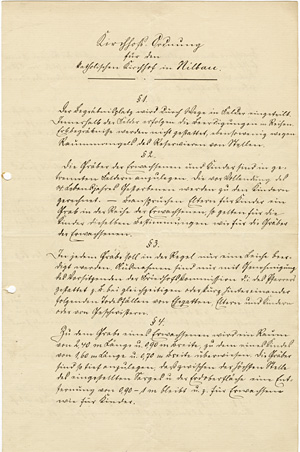 Kirchhof-Ordnung
für den
katholischen Kirchhof in Nilbau.
§ 1.
Der Begräbnisplatz wird durch Wege in Felder eingeteilt.
Innerhalb der Felder erfolgen die Beerdigungen in Reihen.
Erbbegräbnisse werden nicht gestattet, ebensowenig wegen
Raummangels das Reservieren von Stellen.
§ 2.
Die Gräber der Erwachsenen und Kinder sind in ge-
trennten Feldern anzulegen. Die vor Vollendung des
Lebensjahres Gestorbenen werden zu den Kindern
gerechnet. — Beanspruchen Eltern für Kinder ein
Grab in der Reihe der Erwachsenen, so gelten für die
Kinder dieselben Bestimmungen wie für die Gräber
der Erwachsenen.
§ 3.
In jedem Grabe soll in der Regel nur eine Leiche beer-
digt werden. Ausnahmen sind nur mit Genehmigung
des Vorsitzenden der Kirchhofskommission, d. des Pfarrers
gestattet z. B. bei gleichzeitigen oder kurz hintereinander
folgenden Todesfällen von Ehegatten, Eltern und Kindern
oder von Geschwistern.
§ 4.
Zu dem Grabe eines Erwachsenen wird ein Raum
von 2,40 m Länge u. 0,90 m Breite, zu dem eines Kindes
von 1,60 m Länge u. 0,70 m Breite überwiesen. Die Gräber
sind so tief anzulegen, daß zwischen der höchsten Stelle
des eingestellten Sarges u. der Erdoberfläche eine Ent-
fernung von 0,90 – 1 m bleibt u. z. für Erwachsene
wie für Kinder.